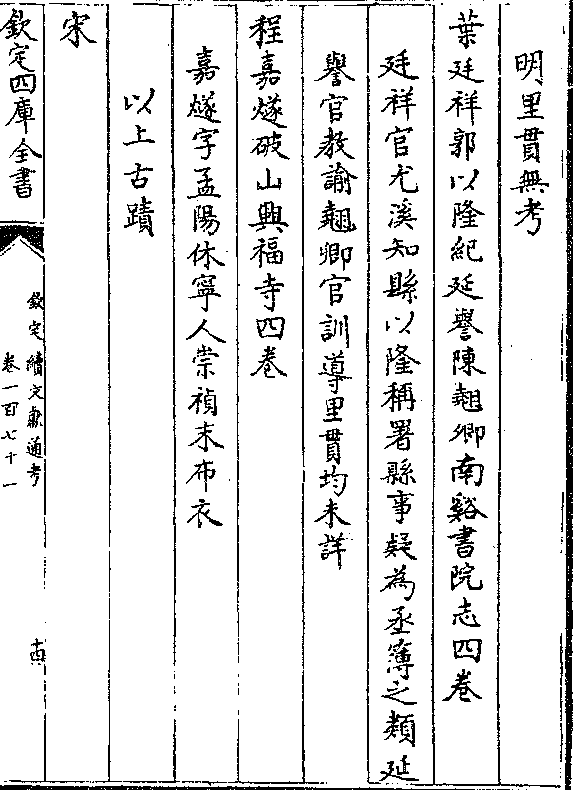 明里貫無考
葉廷祥郭以隆紀廷譽陳翹卿南谿書院志四卷
廷祥官尤溪知縣以隆稱署縣事疑為丞簿之類延
譽官教諭翹卿官訓導里貫均未詳
程嘉燧破山興福寺四卷
嘉燧字孟陽休寧人崇禎末布衣
以上古蹟
宋
欽定四庫全書
欽定續文獻通考
卷一百七十一